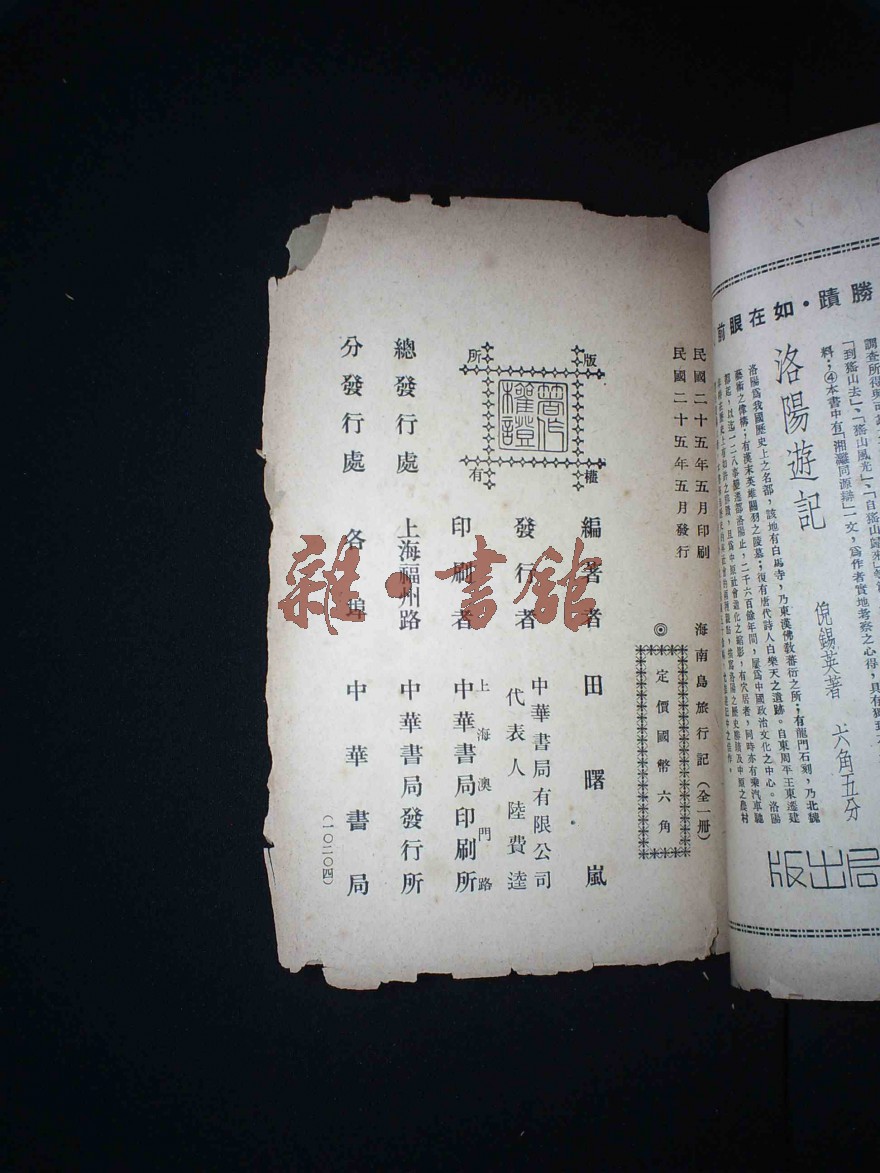 勝蹟・如在眼前
「到猺山去」、「猺山風光」、「自猺山歸來」
料；④本書中有「湘灕同源辯」一文，爲作者實地考察之心得，具有獨到
洛陽遊記
倪錫英著
六角五分
洛陽爲我國歷史上之名都，該地有白馬寺，乃東漢佛教蕃衍之所；有龍門石刻，乃北魏
藝術之偉構；有漢末英雄關羽之陵墓；復有唐代詩人白樂天之遺跡。自東周平王東遷建
都起，以迄一二八事變遷都洛陽止，二千六百餘年間，屢爲中國政治文化之中心。洛陽
局出版
民國二十五年五月印刷
民國二十五年五月發行
海南島旅行記（全一册）
◎定價國幣六角
版權所有
著作權證
編著者 田曙嵐
發行者 中華書局有限公司
代表人陸費逵
印刷者 上海澳門路
中華書局印刷所
總發行處 上海福州路 中華書局發行所
分發行處 各埠 中華書局
（一〇二〇四）
雜・書館